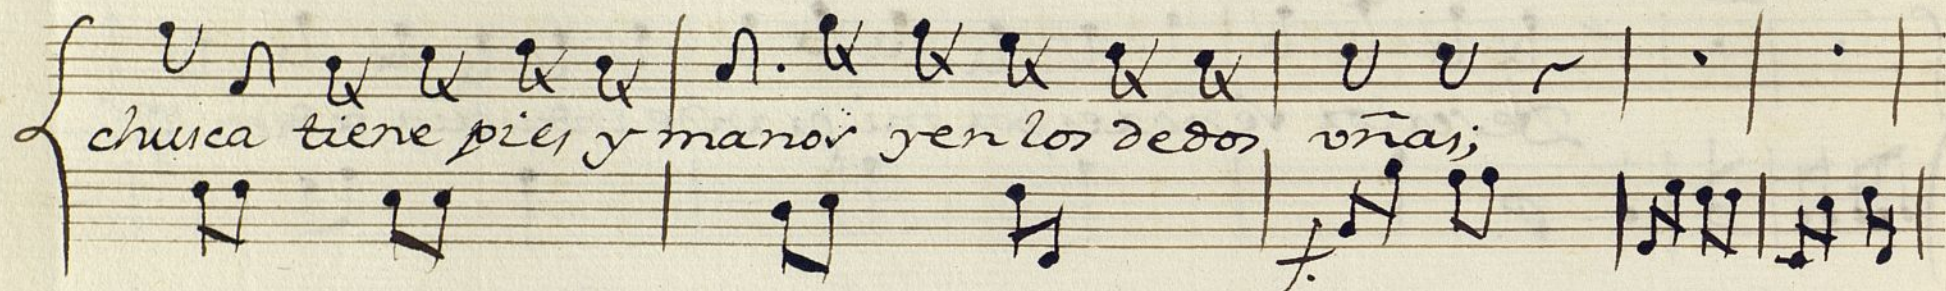 chusca tiene pies y manos yen los dedos vñas;
f.